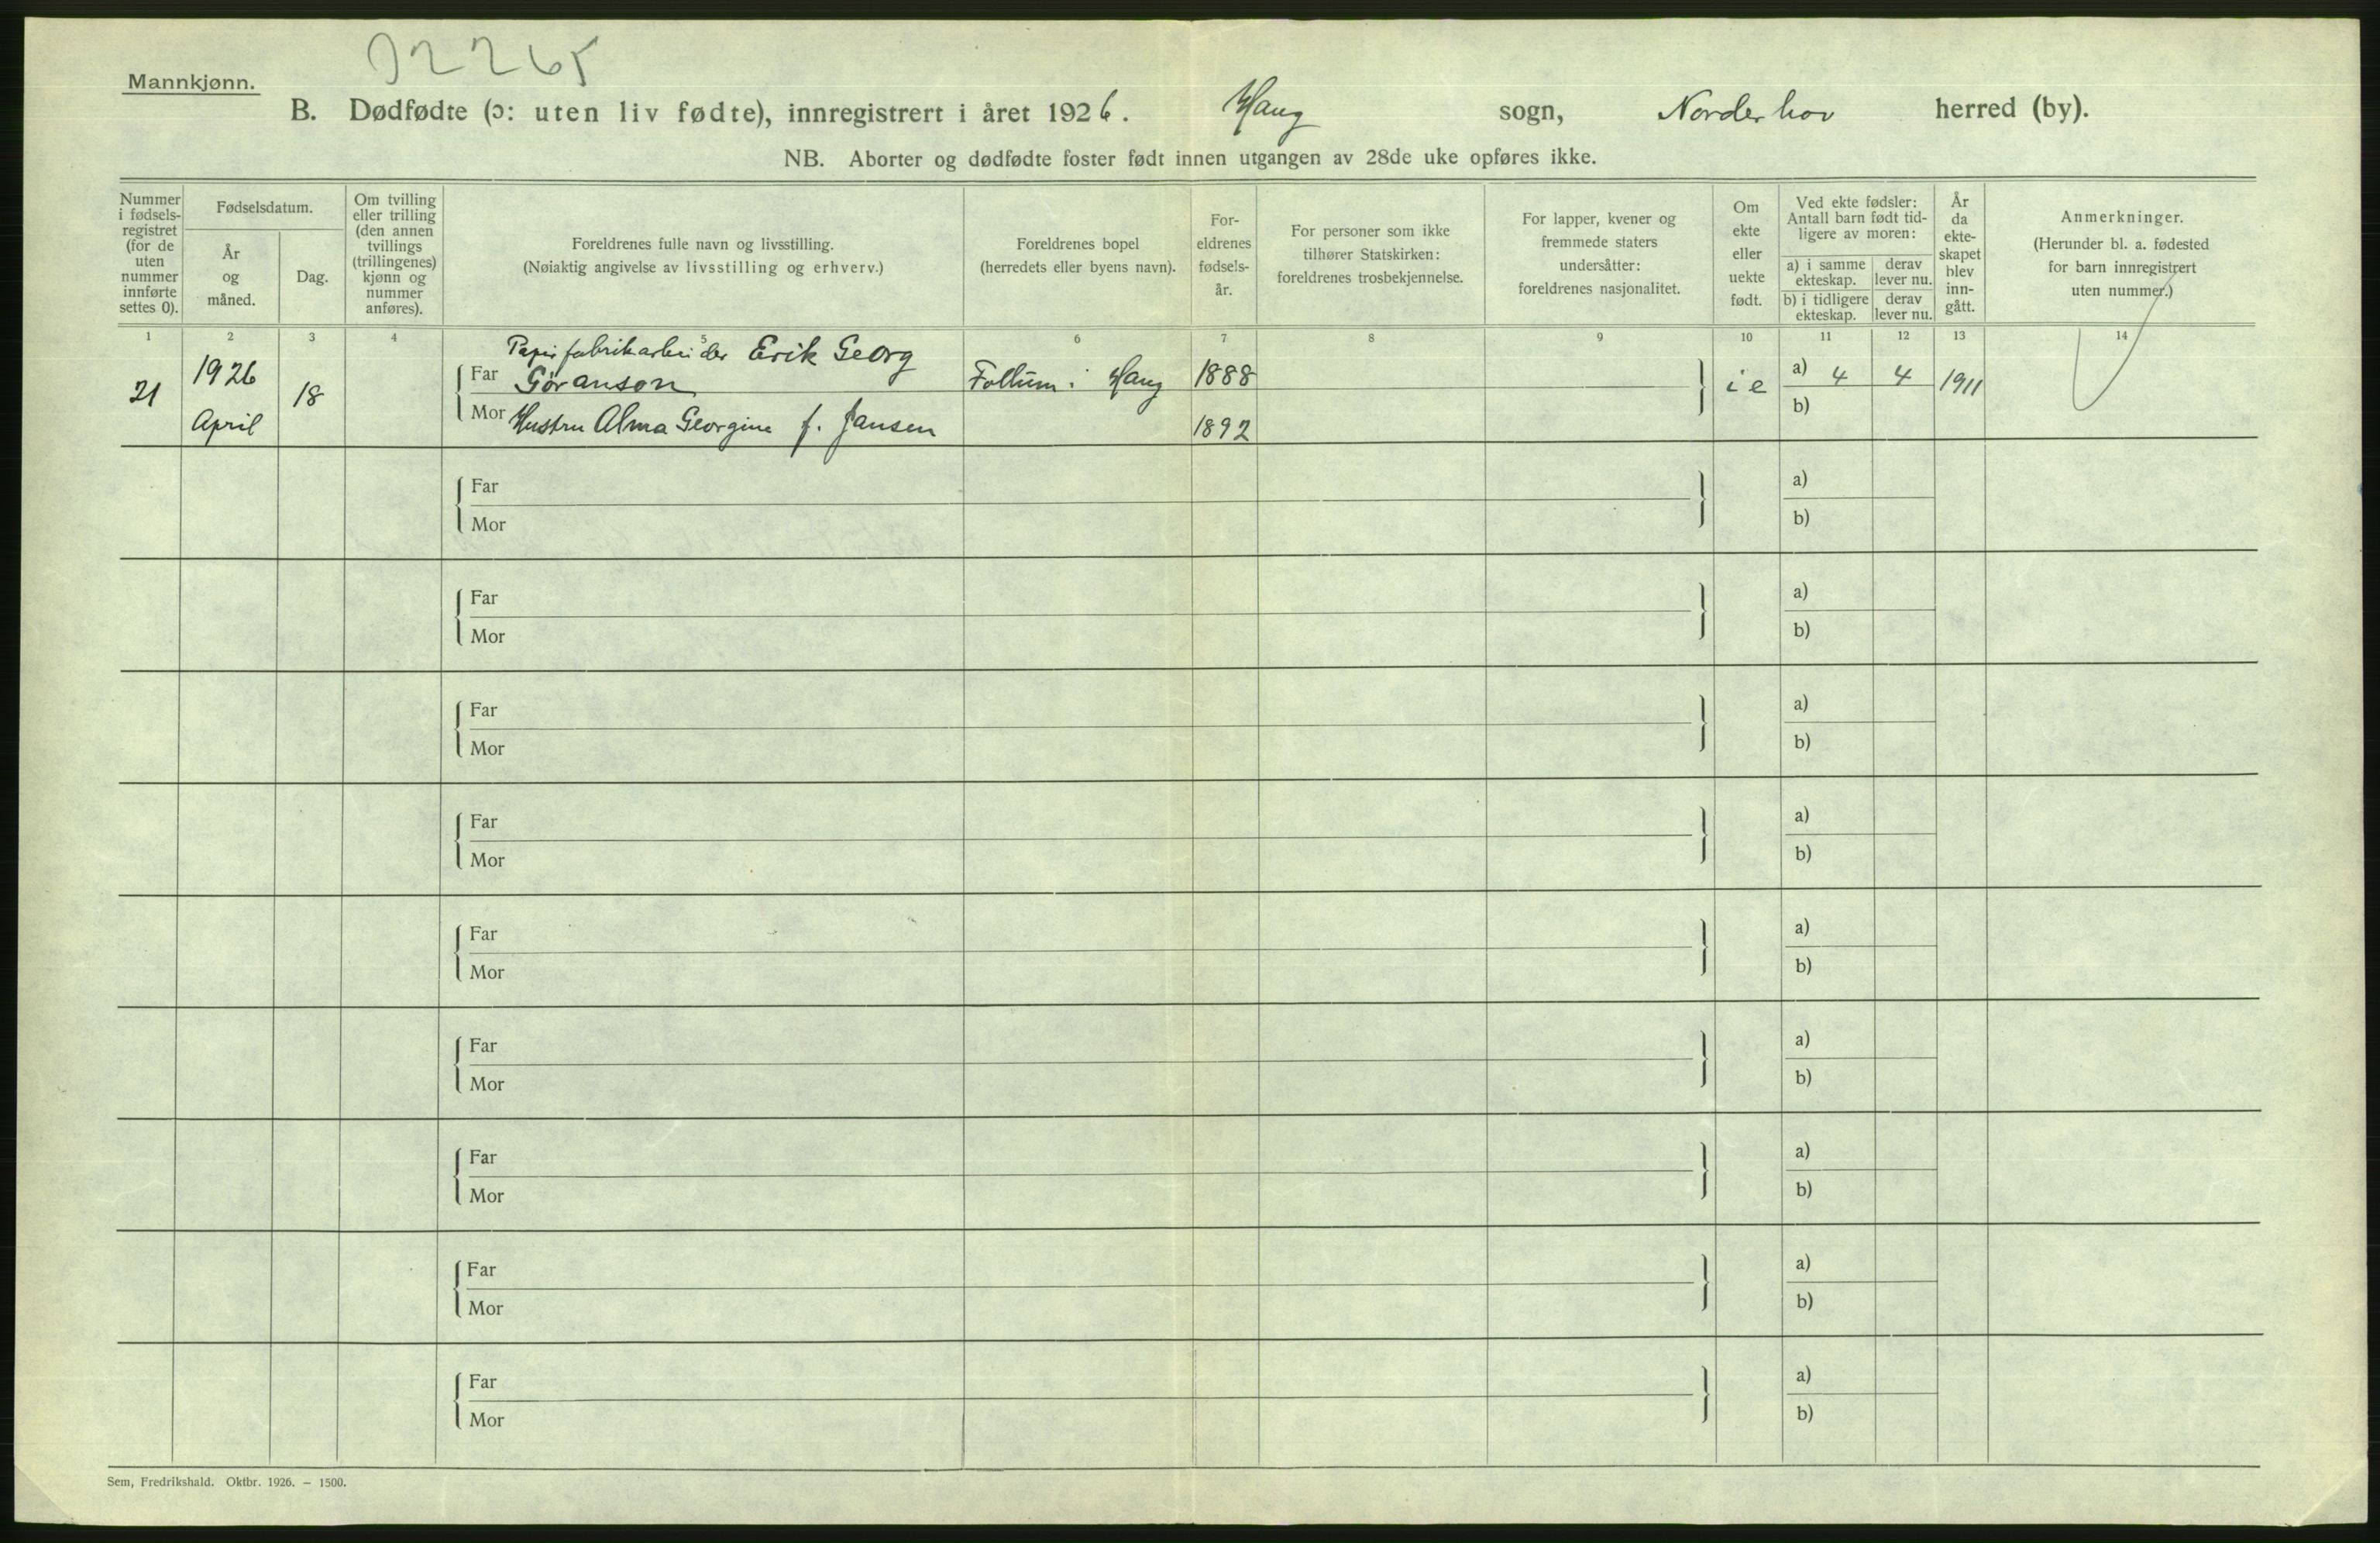 02265
Mannkjønn.
B. Dødfødte (ɔ: uten liv fødte), innregistrert i året 1926. Haug sogn, Norderhov herred (by).
NB. Aborter og dødfødte foster født innen utgangen av 28de uke opføres ikke.
Nummer
i fødsels-
registret
(for de
uten
nummer
innførte
settes 0).
Fødselsdatum.
År
og
måned.
Dag.
Om tvilling
eller trilling
(den annen
tvillings
(trillingenes)
kjønn og
nummer
anføres).
Foreldrenes fulle navn og livsstilling.
(Nøiaktig angivelse av livsstilling og erhverv.)
Foreldrenes bopel
(herredets eller byens navn).
For-
eldrenes
fødsels-
år.
For personer som ikke
tilhører Statskirken:
foreldrenes trosbekjennelse.
For lapper, kvener og
fremmede staters
undersåtter:
foreldrenes nasjonalitet.
Om
ekte
eller
uekte
født.
Ved ekte fødsler:
Antall barn født tid-
ligere av moren:
a) i samme
ekteskap.
derav
lever nu.
b) i tidligere
ekteskap.
derav
lever nu.
År
da
ekte-
skapet
blev
inn-
gått.
Anmerkninger.
(Herunder bl. a. fødested
for barn innregistrert
uten nummer.)
1 2 3 4 5 6 7 8 9 10 11 12 13 14
21
1926
April
18
Papirfabrikarbeider Erik Georg
Far Göranson
Mor Hustru Alma Georgine f. Jansen
Follum i Haug
1888
1892
i e
a) 4 4
b)
1911
Far
Mor
a)
b)
Far
Mor
a)
b)
Far
Mor
a)
b)
Far
Mor
a)
b)
Far
Mor
a)
b)
Far
Mor
a)
b)
Far
Mor
a)
b)
Far
Mor
a)
b)
Far
Mor
a)
b)
Sem, Fredrikshald. Oktbr. 1926. – 1500.